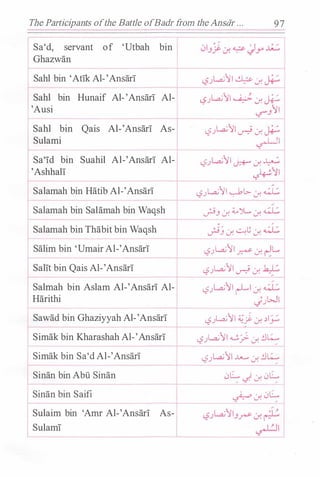 The Participants of the Battle of Badr from the Ansār ... 97
Sa'd, servant of 'Utbah bin Ghazwān
Sahl bin 'Atīk Al-'Ansārī سهل بن عتيك الأنصاري
Sahl bin Hunaif Al-'Ansārī Al-'Ausi سهل بن حنيف الأنصاري الأوسي
Sahl bin Qais Al-'Ansārī As-Sulami سهل بن قيس الأنصاري السلمي
Sa'īd bin Suahil Al-'Ansārī Al-'Ashhalī سعيد بن سهيل الأنصاري الأشهلي
Salamah bin Hātib Al-'Ansārī سلمة بن حاطب الأنصاري
Salamah bin Salāmah bin Waqsh سلمة بن سلامة بن وقش
Salamah bin Thābit bin Waqsh سلمة بن ثابت بن وقش
Sālim bin 'Umair Al-'Ansārī سالم بن عمير الأنصاري
Salīt bin Qais Al-'Ansārī سليط بن قيس الأنصاري
Salmah bin Aslam Al-'Ansārī Al-Hārithi سلمة بن أسلم الأنصاري الحارثي
Sawād bin Ghaziyyah Al-'Ansārī سواد بن غزية الأنصاري
Simāk bin Kharashah Al-'Ansārī سماك بن خرشة الأنصاري
Simāk bin Sa'd Al-'Ansārī سماك بن سعد الأنصاري
Sinān bin Abū Sinān سنان بن أبي سنان
Sinān bin Saifi سنان بن صيفي
Sulaim bin 'Amr Al-'Ansārī As-Sulamī سليم بن عمرو الأنصاري السلمي